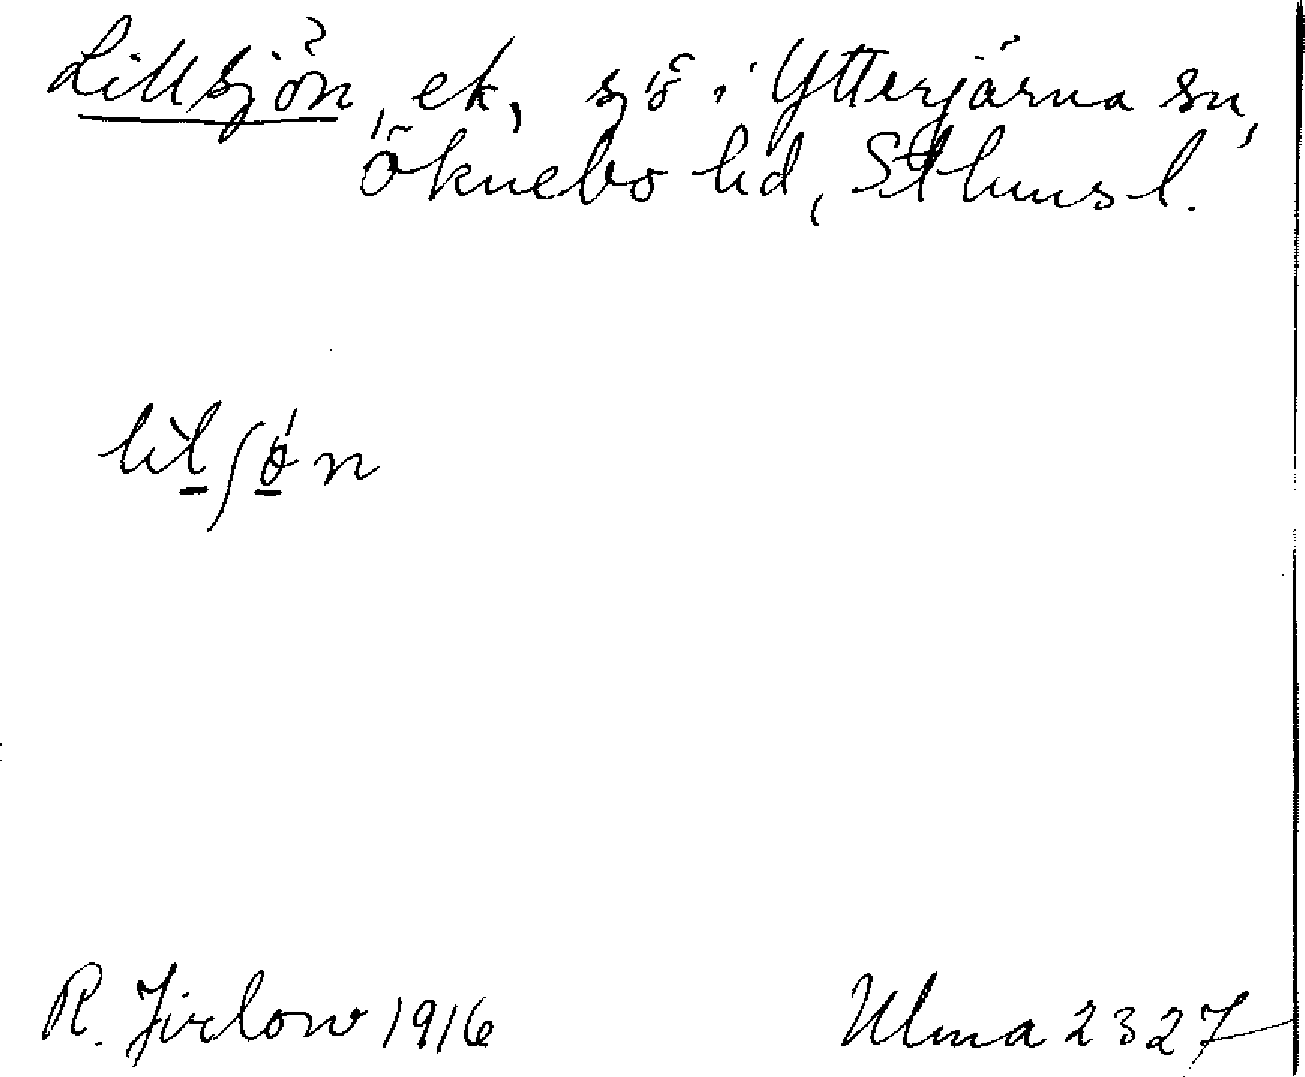 Lillsjön, ek, sjö i Ytterjärna sn,
Öknebo hd, Sthms l.
lìlʃǿn
R. Jirlow 1916
Ulma 2327